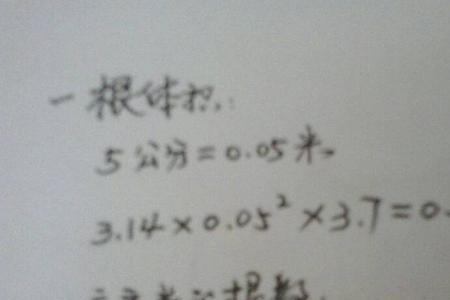 一根体积:
5公分=0.05米。
3.14×0.05²×3.7=0.
根数